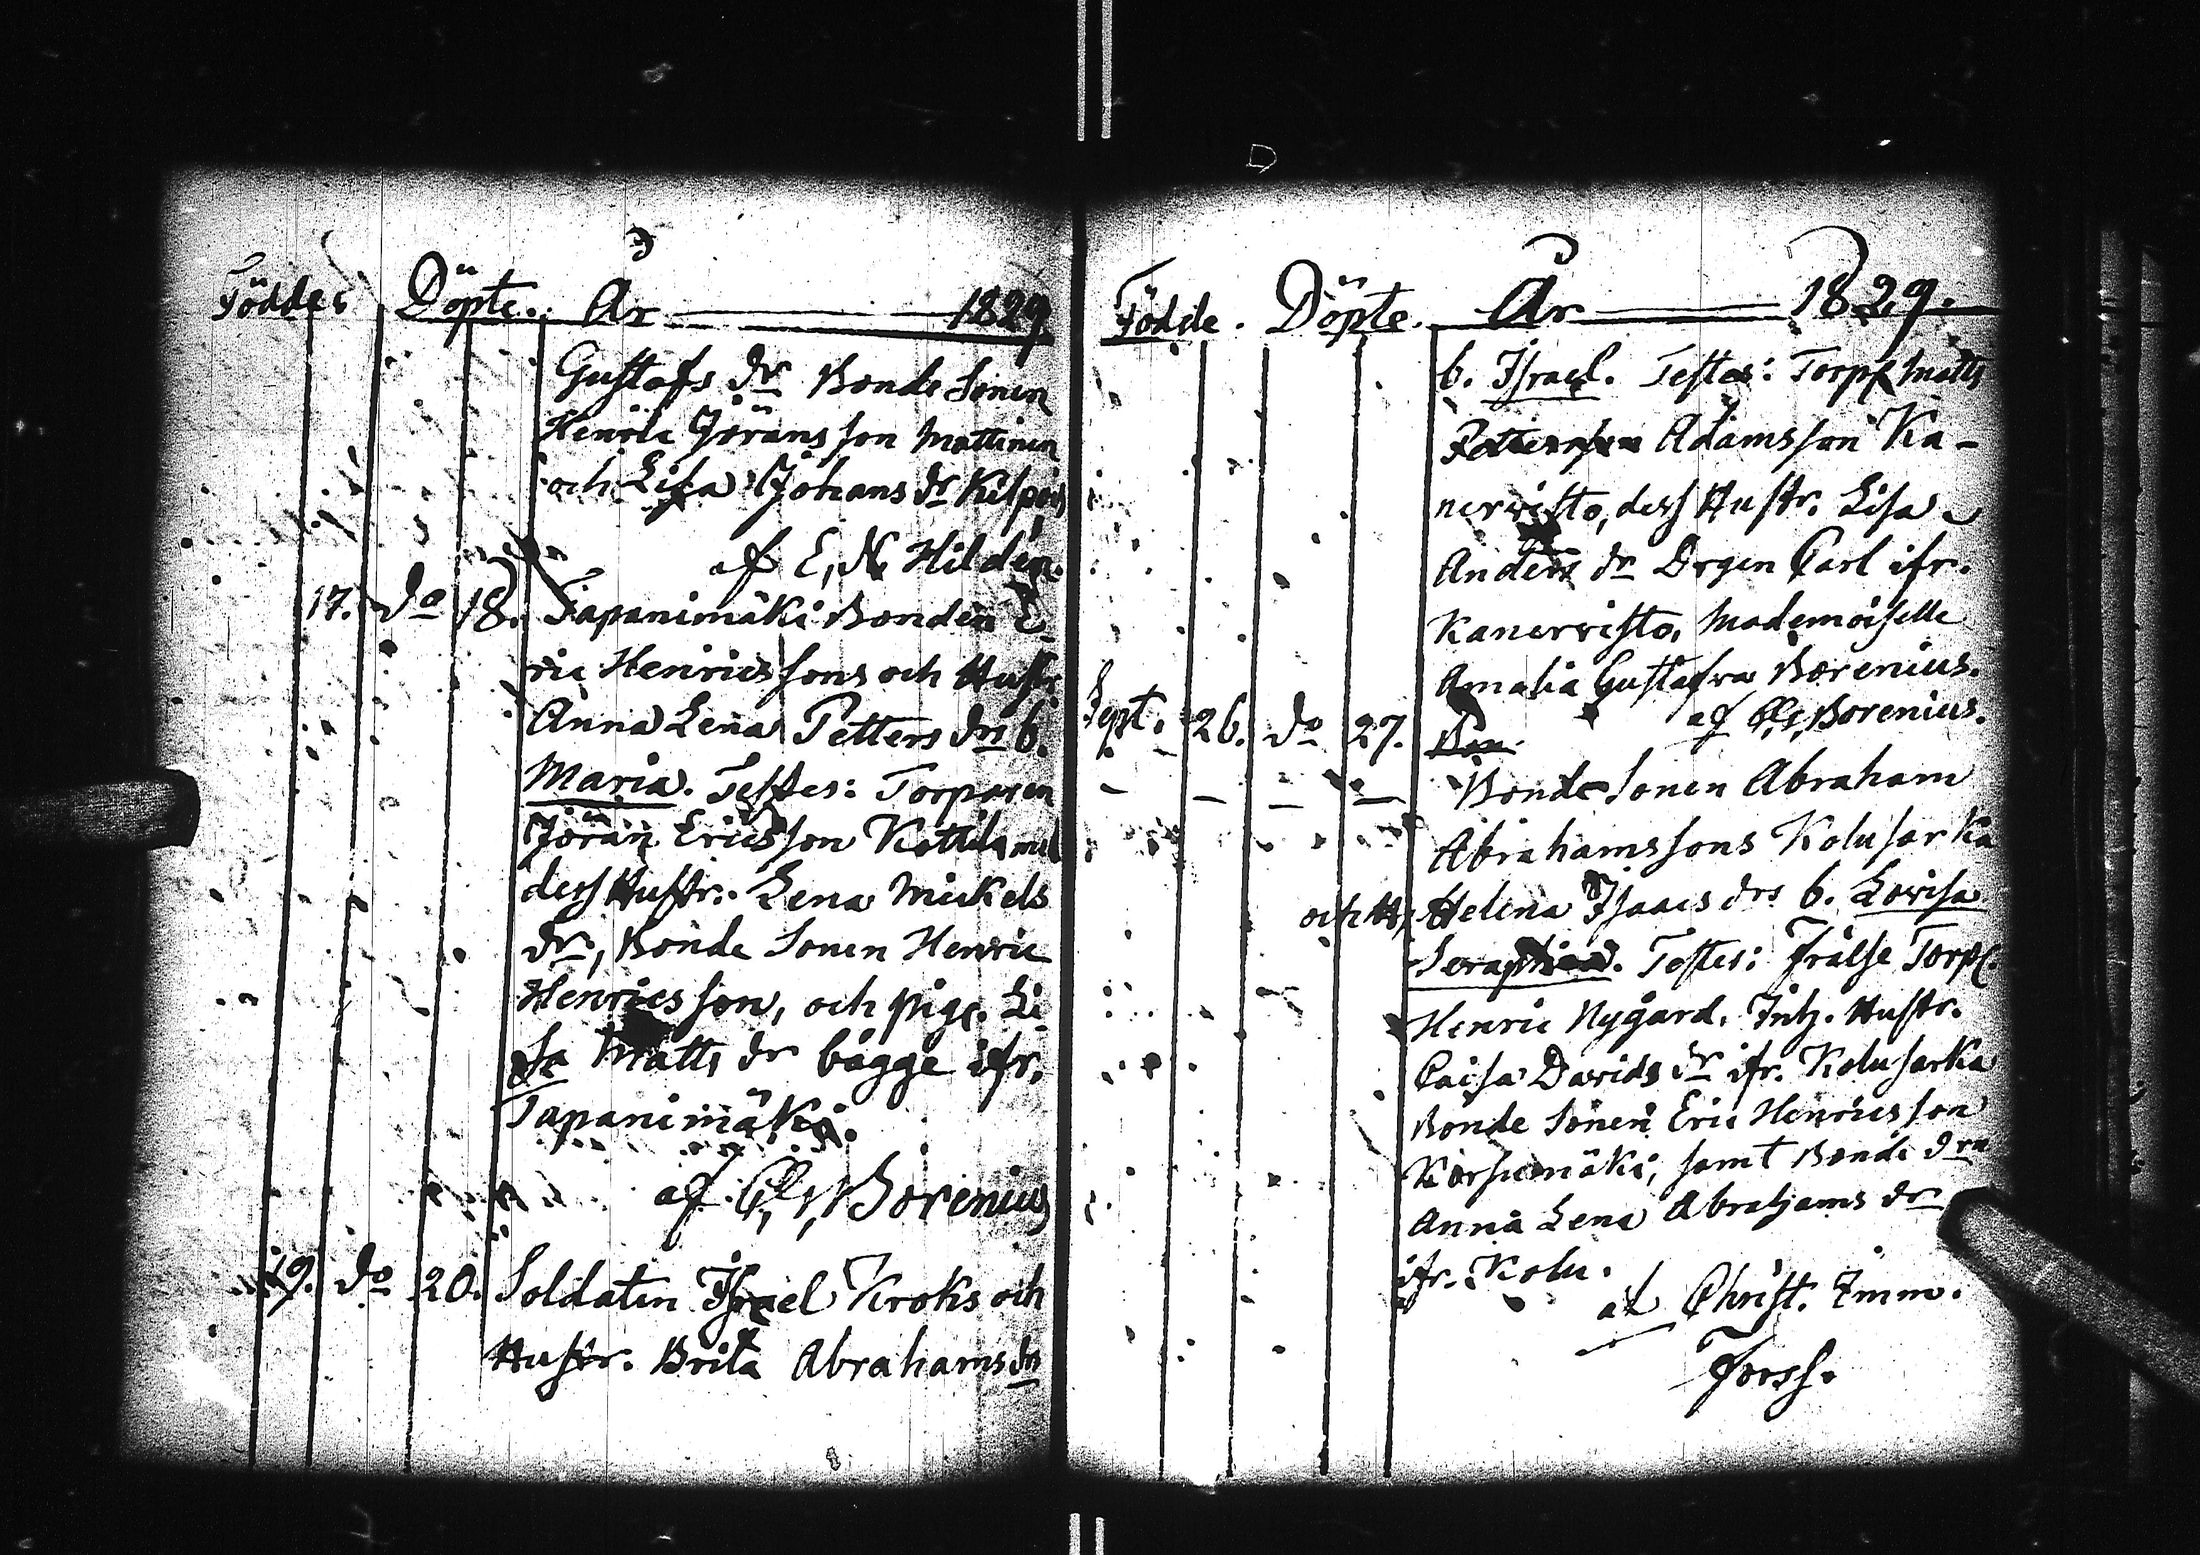 Födde. Döpte. År 1829
Gustafs dr Bonde Sonen
Henric Jöransson Mattinen
och Lisa Johans dr Kilpoin
af E, N, Hildén.
17. do 18. Tapanimäki Bonden E-
ric Henricssons och Hustr.
Anna Lena Petters drs b.
Maria. Testes: Torparen
Jöran Ericsson Kottila med
dess Hustr. Lena Mickels
dr, Bonde Sonen Henric
Henricsson, och pig. Li
sa Matts dr bägge ifr.
Tapanimäki.
af C, G, Borenius
19. do 20. Soldaten Israel Kroks och
Hustr. Brita Abrahams drs
Födde. Döpte. År 1829.
b. Israel. Testes: Torp. Matts
Pettersson Adamsson Ka-
nervisto, dess Hustr. Lisa
Anders dr Drgen Carl ifr.
Kanervisto, Mademoiselle
Amalia Gustafva Borenius.
af C, G, Borenius.
Sept. 26. do 27. Bon
Bonde Sonen Abraham
Abrahamssons Kolusarka
och H, Helena Isaacs drs b. Lovisa
Seraphia. Testes: Frälse Torp.
Henric Nygård, Inh. Hustr.
Caisa Davids dr ifr. Kolusarka
Bonde Sonen Eric Henricsson
Korsumäki, samt Bonde drn
Anna Lena Abrahams dr
ifr. Kolu.
af Christ. Imm.
Forss.